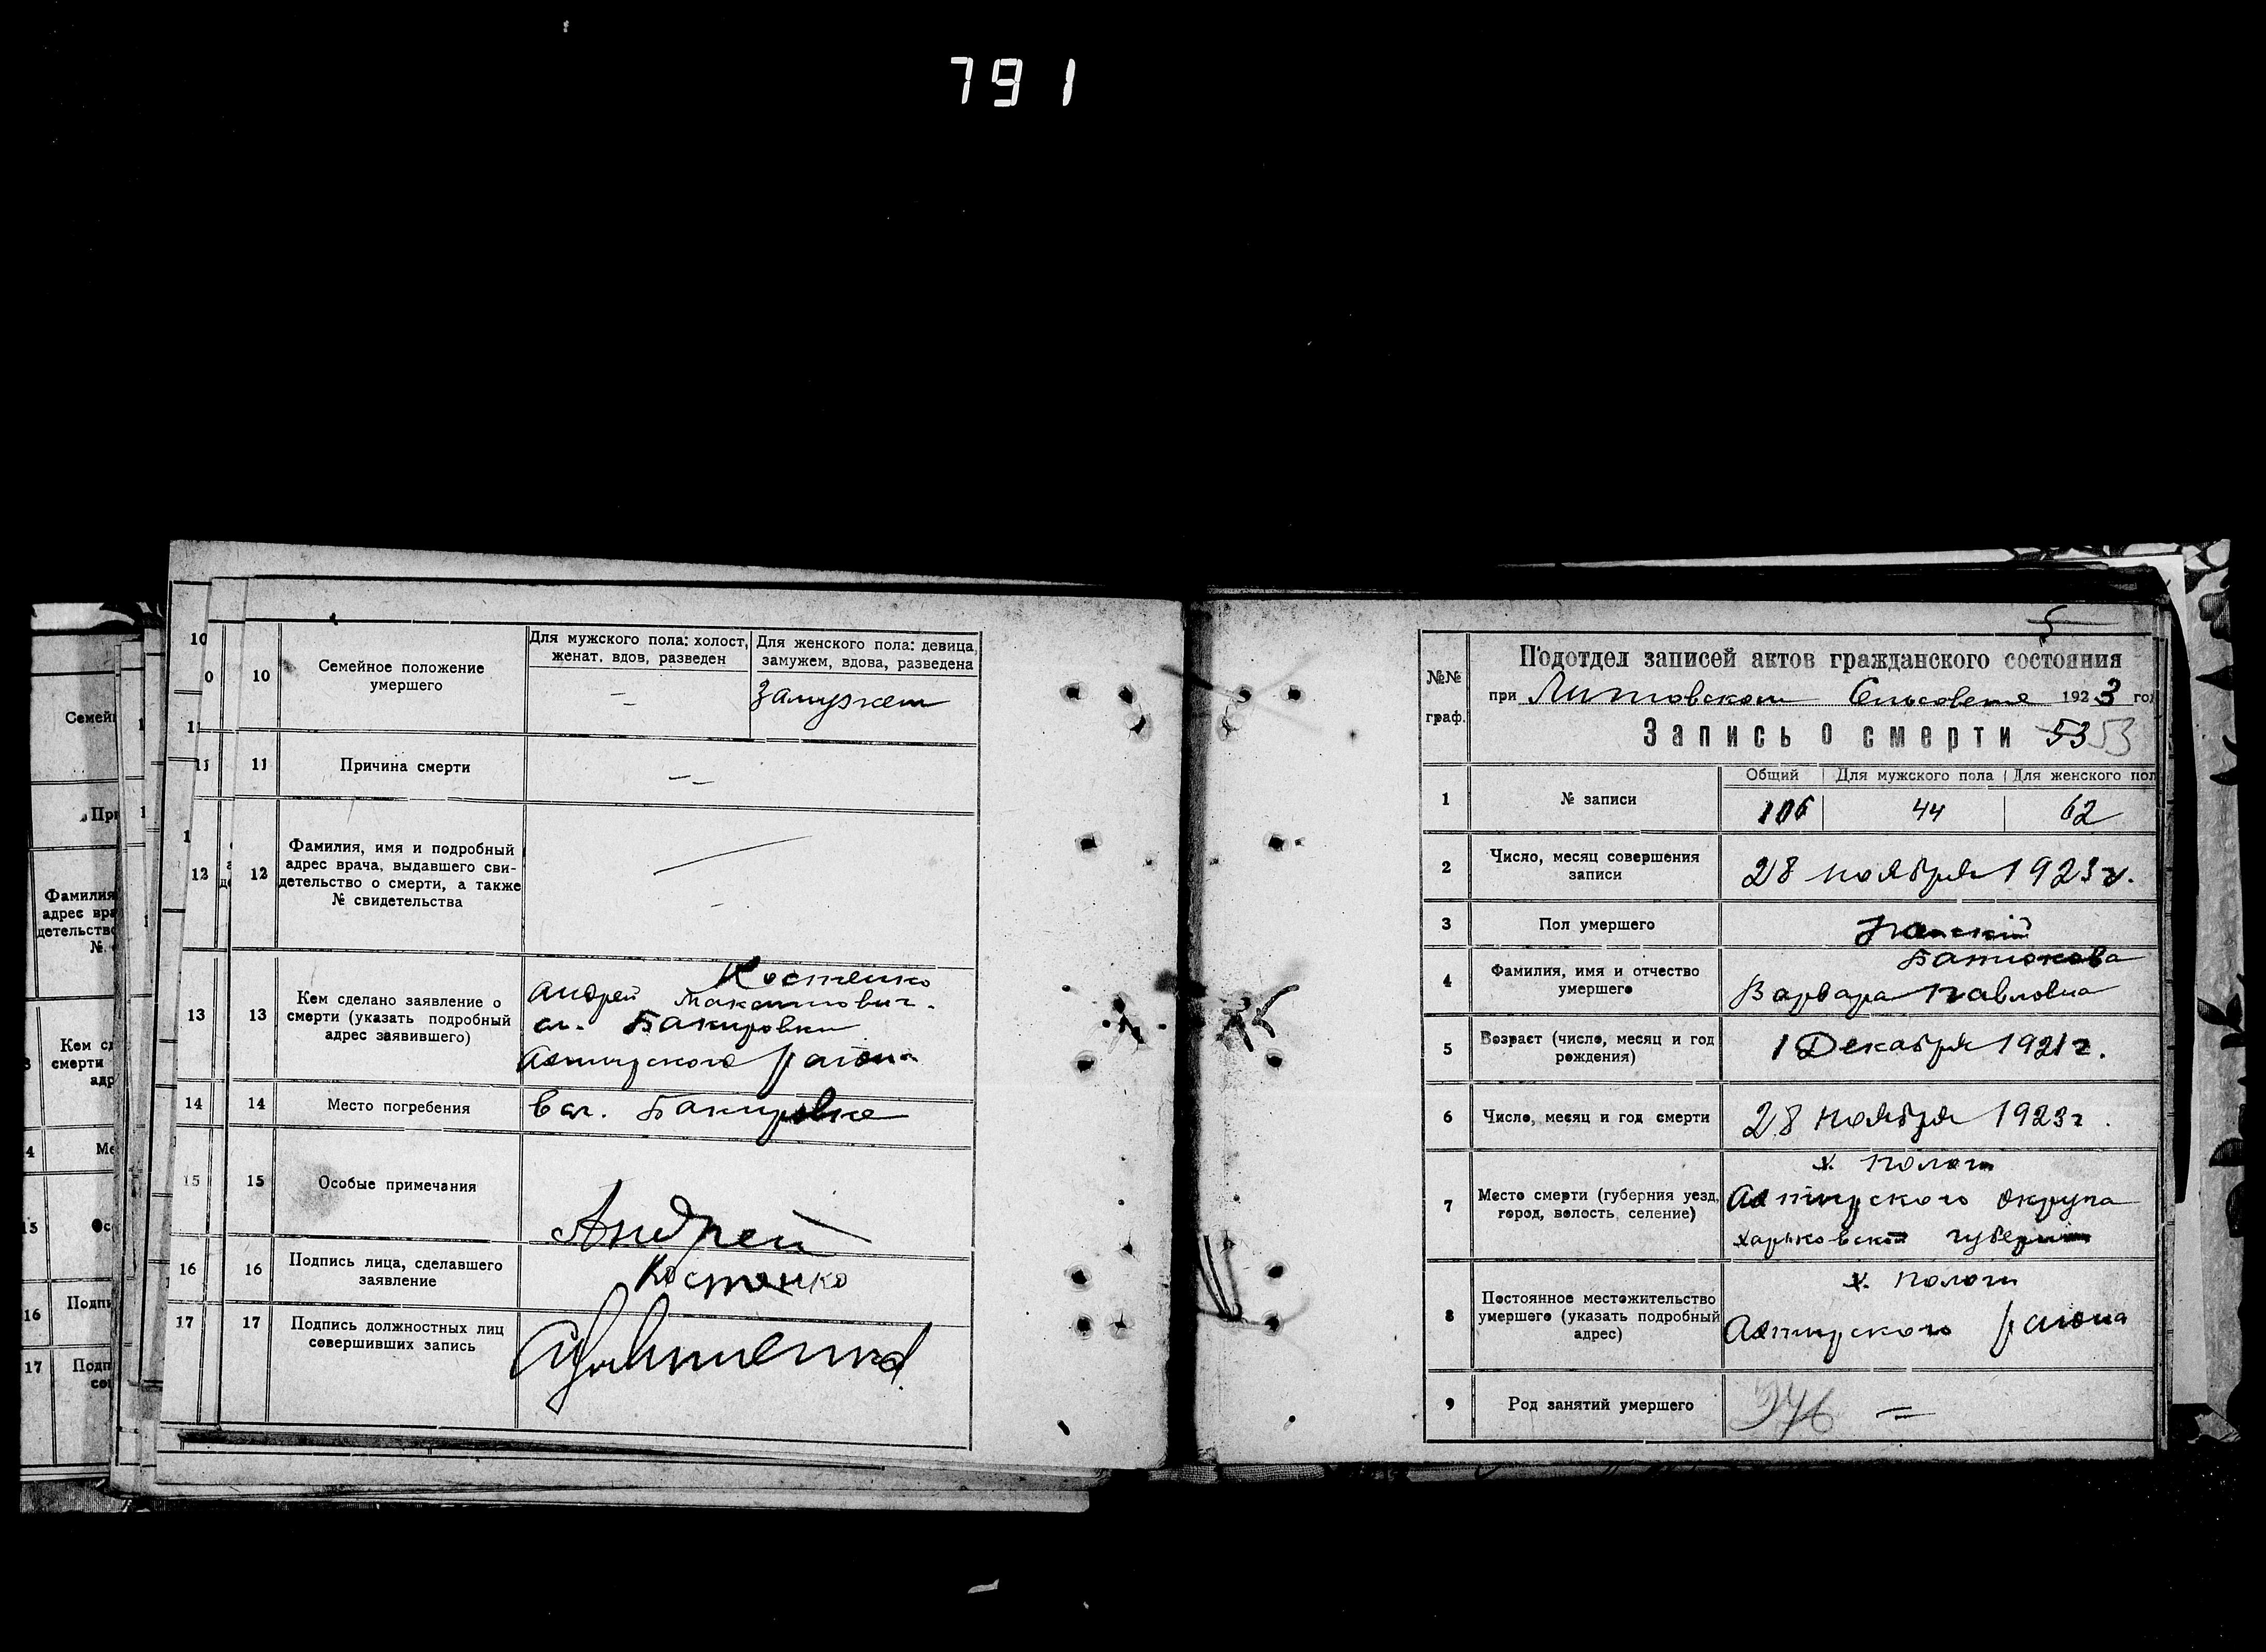 791
10
Семейное положение
умершего
Для мужского пола: холост,
женат, вдов, разведен
Для женского пола: девица,
замужем, вдова, разведена
—
Замужем
11
Причина смерти
— —
12
Фамилия, имя и подробный
адрес врача, выдавшего сви-
детельство о смерти, а также
№ свидетельства
—
13
Кем сделано заявление о
смерти (указать подробный
адрес заявившего)
Костенко
Андрей Максимович
сл. Бакировки
Ахтырского района
14
Место погребения
В сл. Бакировке
15
Особые примечания
16
Подпись лица, сделавшего
заявление
Андрей
Костенко
17
Подпись должностных лиц
совершивших запись
№№
граф.
Подотдел записей актов гражданского состояния
при Литовском Сельсовете 1923 год
Запись о смерти 53 53
1
№ записи
Общий
Для мужского пола
Для женского пол
106
44
62
2
Число, месяц совершения
записи
28 ноября 1923 г.
3
Пол умершего
Женский
4
Фамилия, имя и отчество
умершего
Батюкова
Варвара Павловна
5
Возраст (число, месяц и год
рождения)
1 Декабря 1921 г.
6
Число, месяц и год смерти
28 ноября 1923 г.
7
Место смерти (губерния уезд,
город, волость, селение)
х. Пологи
Ахтырского округа
Харьковской губернии
8
Постоянное местожительство
умершего (указать подробный
адрес)
х. Пологи
Ахтырского района
9
Род занятий умершего
—